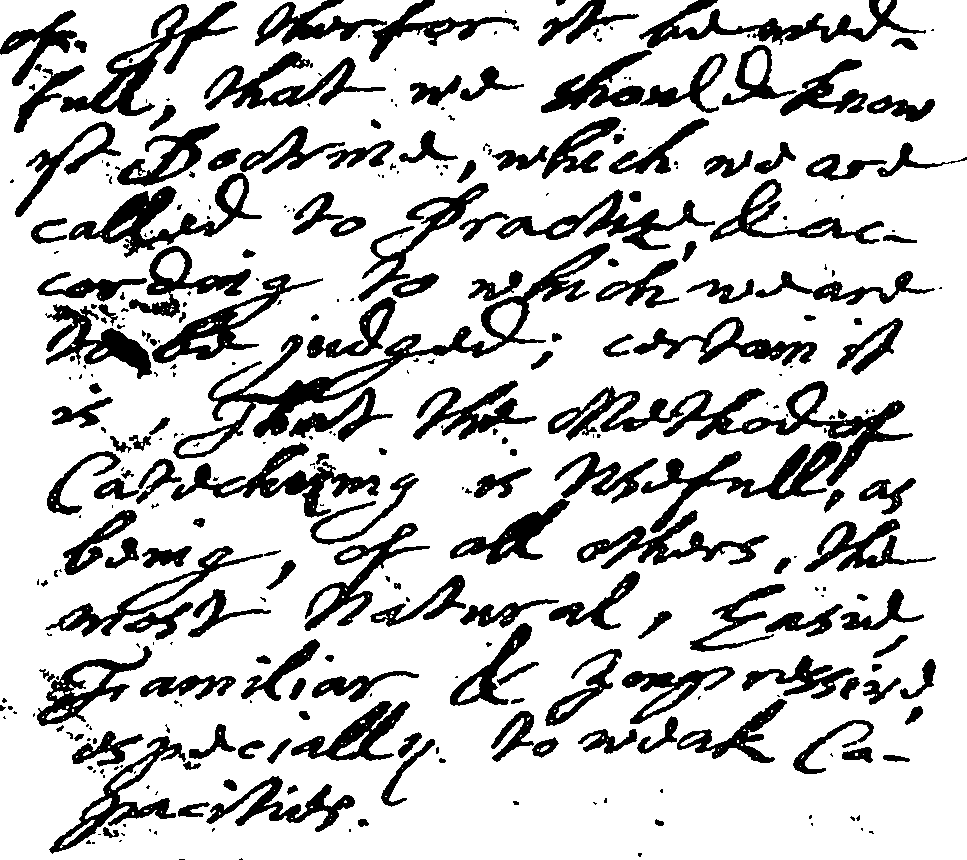 of. If therfor it be need-
full, that we should know
yt Doctrine, which we are
called to Practize, & ac-
cording to which we are
to be judged; certain it
is, That the Method of
Catechising is Usefull, as
being, of all others, the
most Natural, Easie,
Familiar & Impressive,
especially to weak Ca-
pacities.